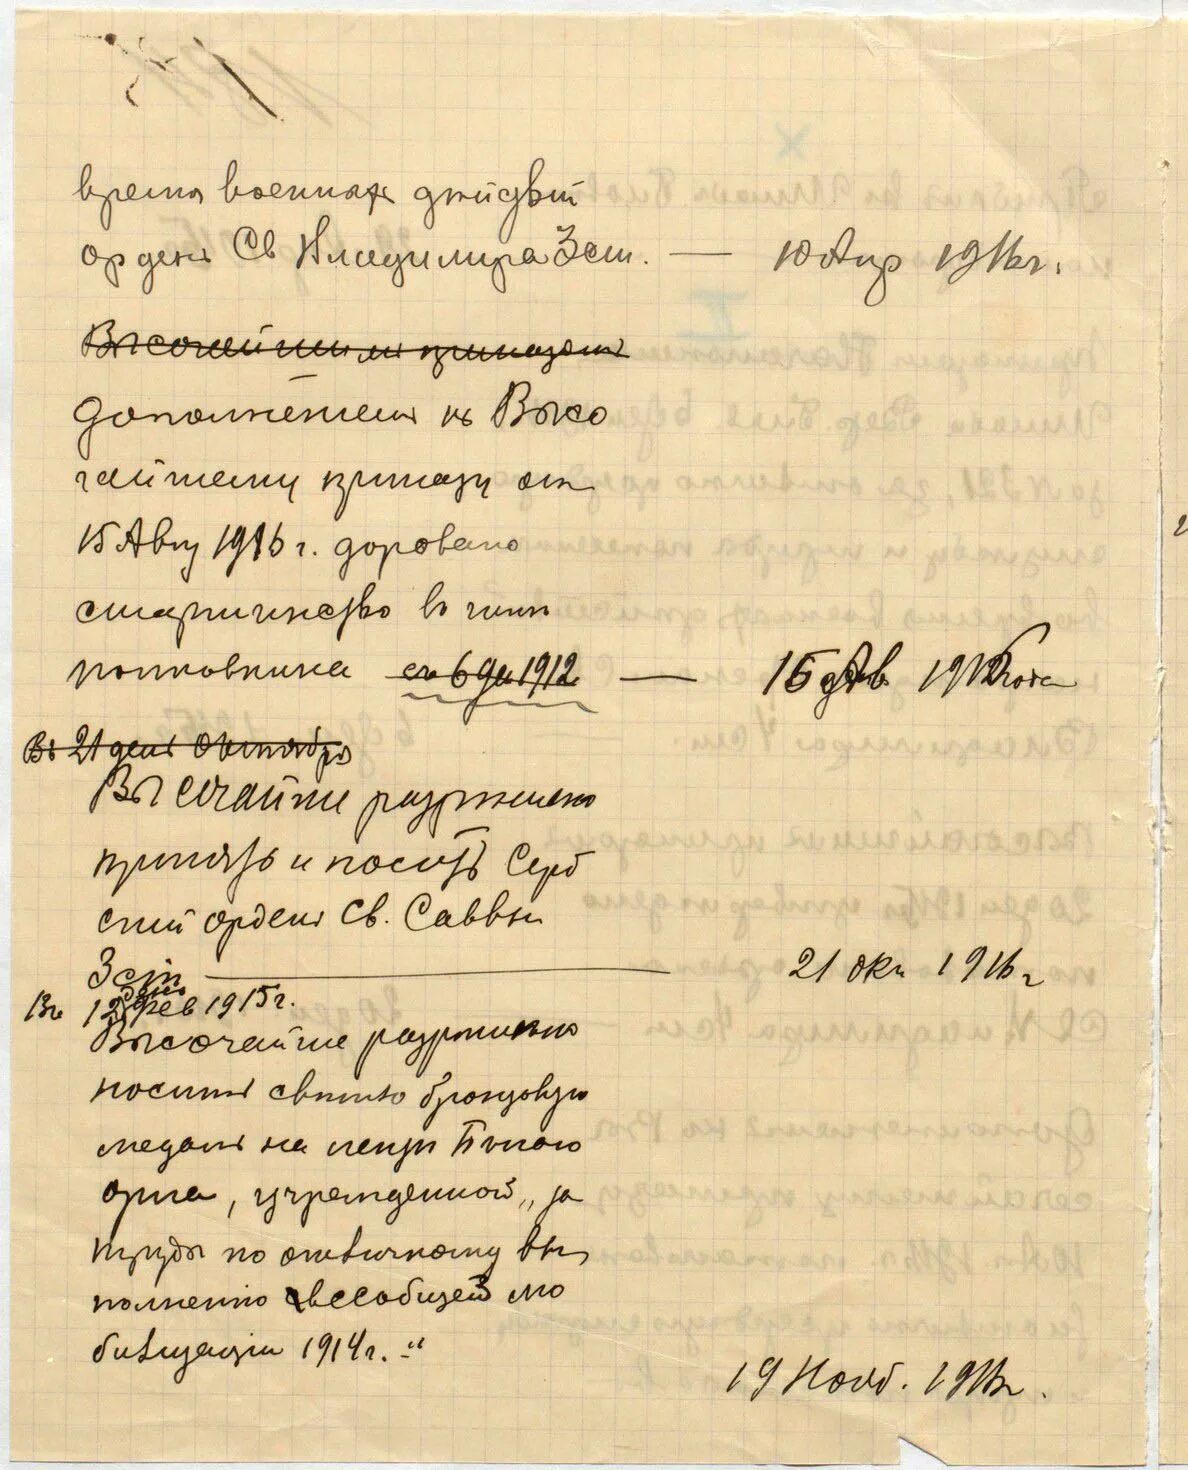 время военнах дѣйствій
орденъ Св Владимира 3 ст. — 10 Апр 1916 г.
Высочайшимъ приказомъ
Дополненіемъ къ Высо
чайшему приказу отъ
15 Авгу 1916 г. даровано
старшинство въ чинѣ
полковника съ 6 Де 1912 — 15 Ав. 191 года
Въ 21 день Октября
Высочайше разрѣшено
принять и носить Серб
скій орденъ Св. Саввы
3 ст — 21 Окт 1916 г
12 Фев 1915 г.
Высочайше разрѣшено
носить свѣтло бронзовую
медаль на лентѣ Бѣлаго
орла, учрежденной „за
труды по отличному вы
полненію всеобщей мо
билизаціи 1914 г."
19 Нояб. 1916 г.